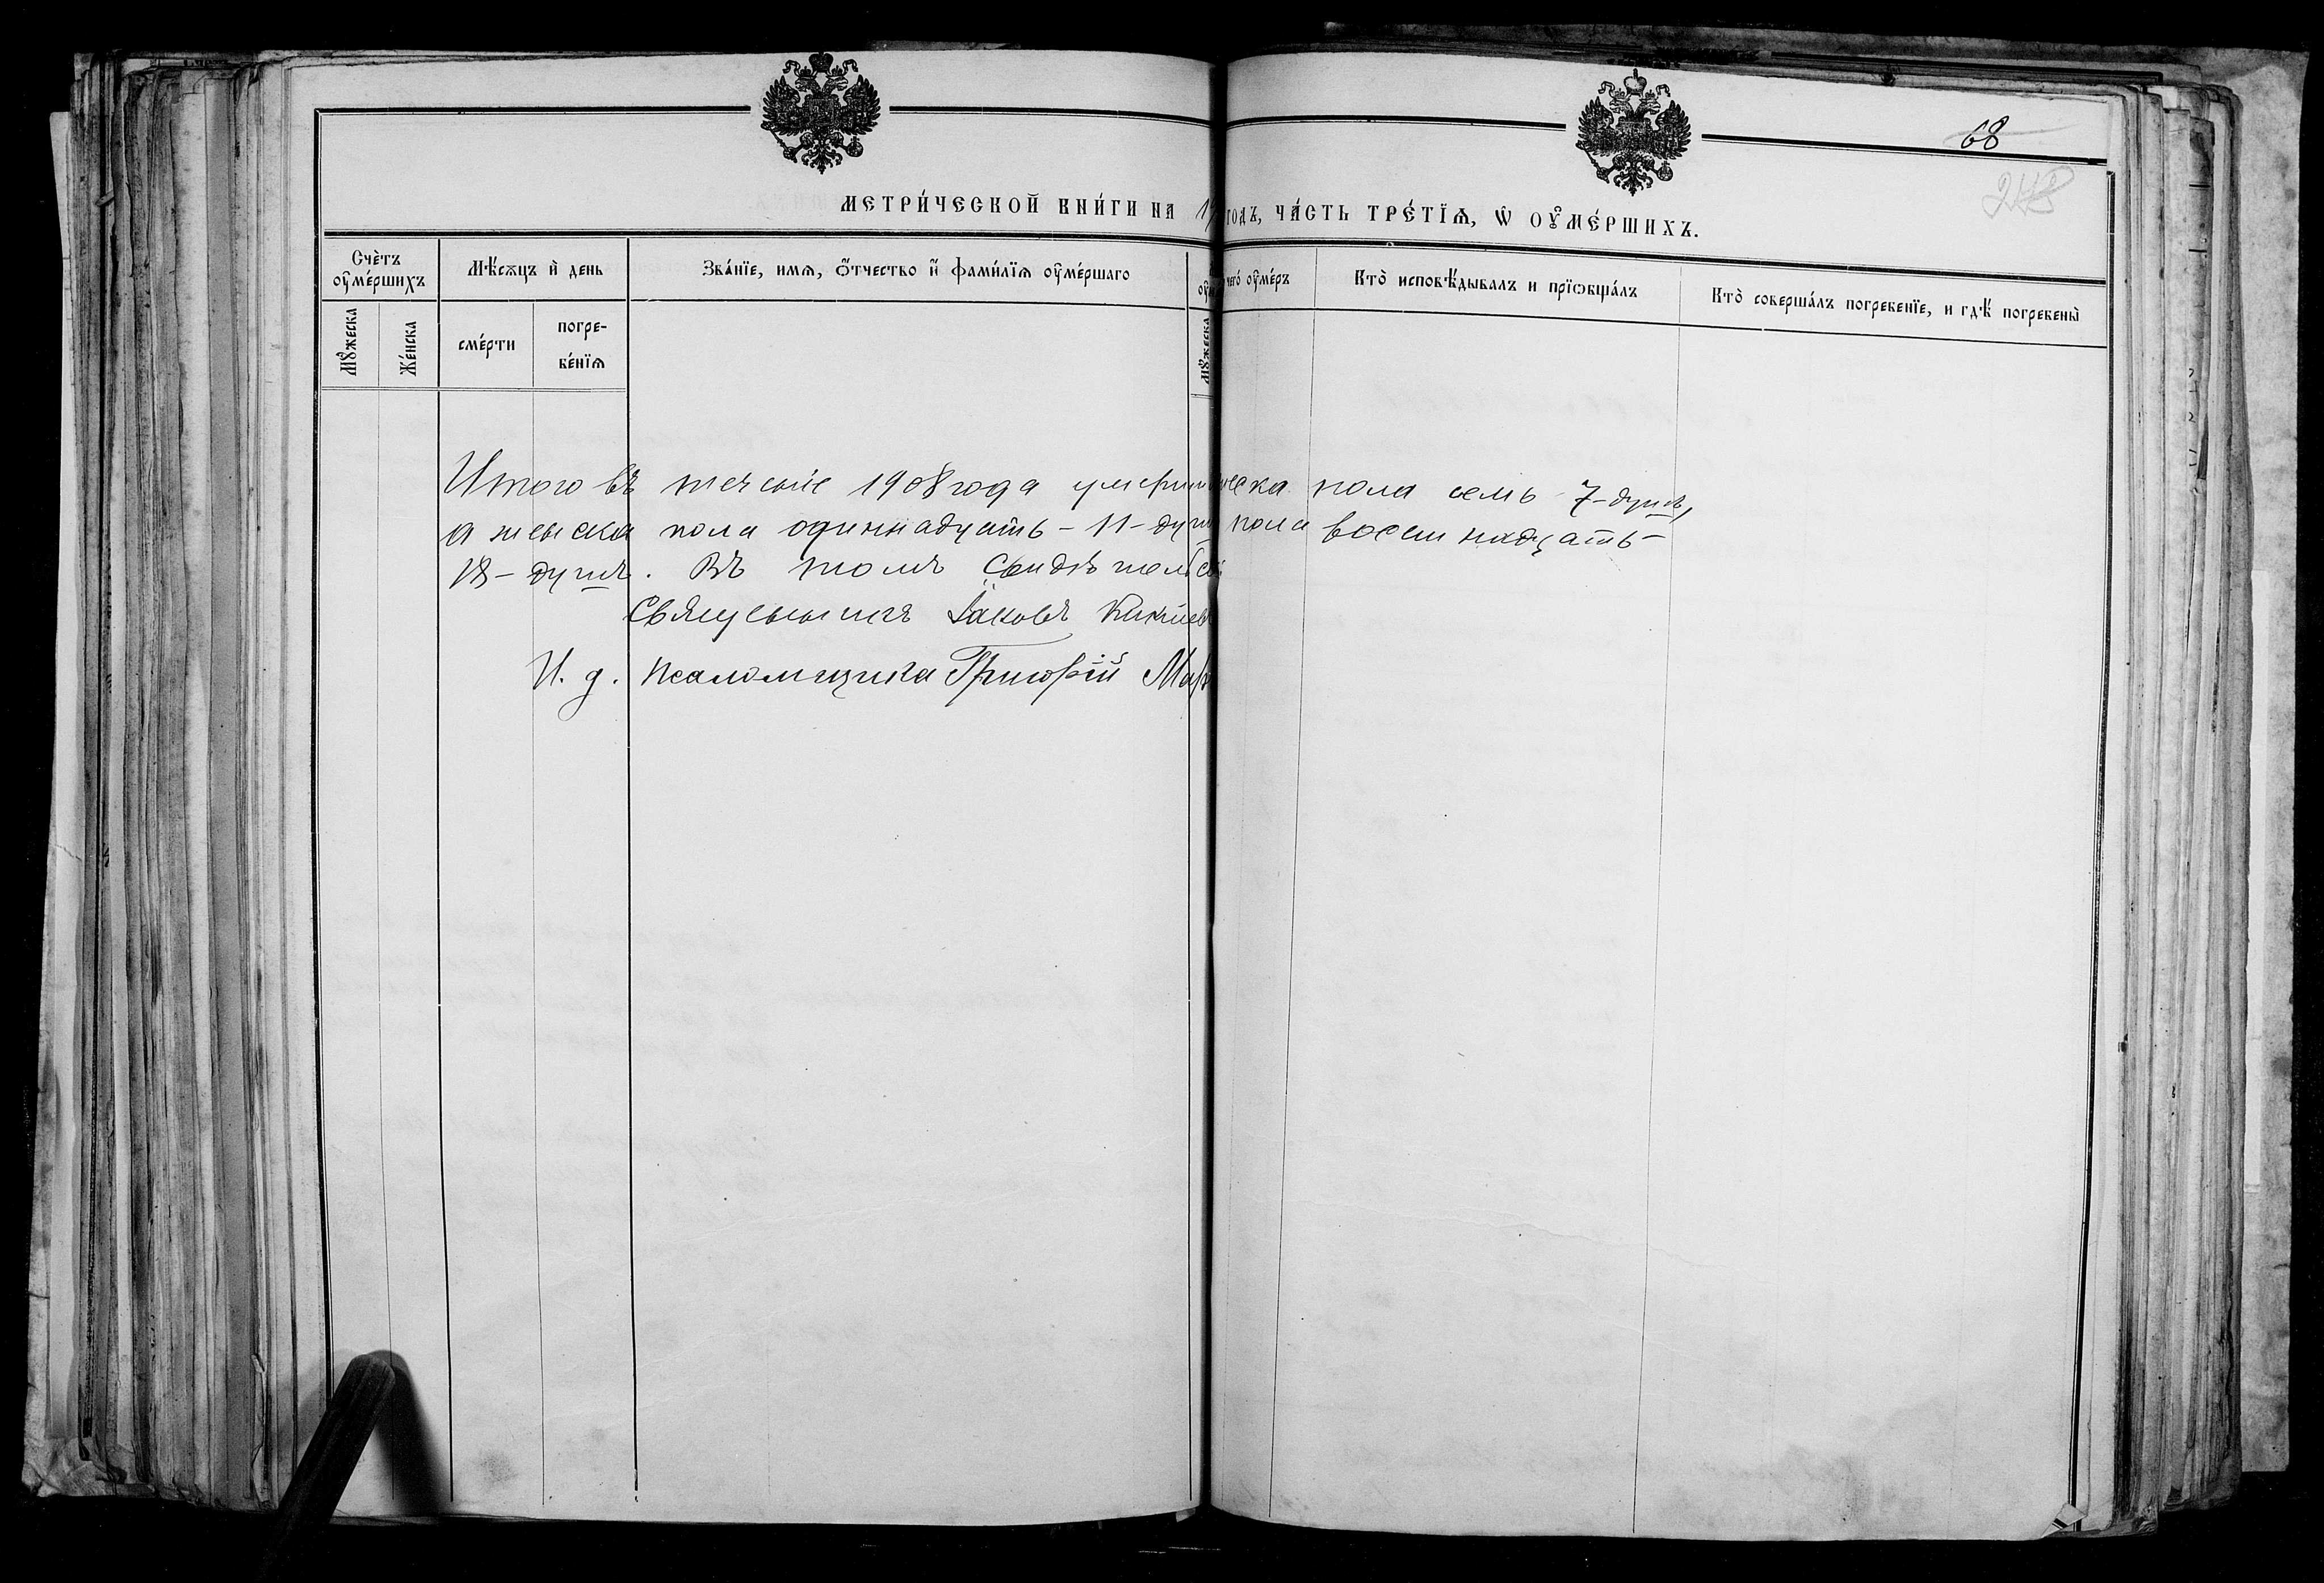 68
МЕТРИ́ЧЕСКОЙ КНИ́ГИ НА 19 ГОДЪ, ЧА́СТЬ ТРЕ́ТЇѦ, Ѡ҆ ОУ҆МЕ́РШИХЪ.
Счѐтъ оу҆ме́ршихъ
Мѣ́сѧцъ и҆ де́нь
Зва́нїе, имѧ, ѻ҆́тчество и҆ фами́лїѧ оу҆ме́ршаго
чегѡ̀ оу҆ме́ръ
Кто̀ исповѣ́дывалъ и прїѡбща́лъ
Кто̀ соверша́лъ погребенїе, и гдѣ̀ погребены̀
Мꙋ́жеска
Же́нска
сме́рти
погре-
бе́нїѧ
Мꙋ́жеска
Итого въ теченіе 1908 года умерш еска пола семь 7-душъ,
а женска пола одиннадцать - 11 - душъ пола восемнадцать -
18 - душъ. Въ томъ свидѣтельс
Священникъ Іаковъ
И. д. псаломщика Григорій Мар